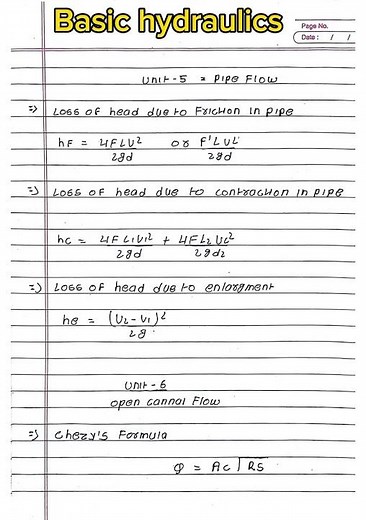 Basic hydraulics
Page No.
Date: / /
Unit-5 = Pipe Flow
=> Loss of head due to Friction in pipe
hF = 4FLV² / 2gd or F'LV² / 2gd
=> Loss of head due to contraction in pipe
hc = 4FL1V1² / 2gd + 4FL2V2² / 2gd2
=> Loss of head due to enlargment
he = (V2 - V1)² / 2g
Unit-6
open cannal Flow
=> Chezy's Formula
Q = AC√RS